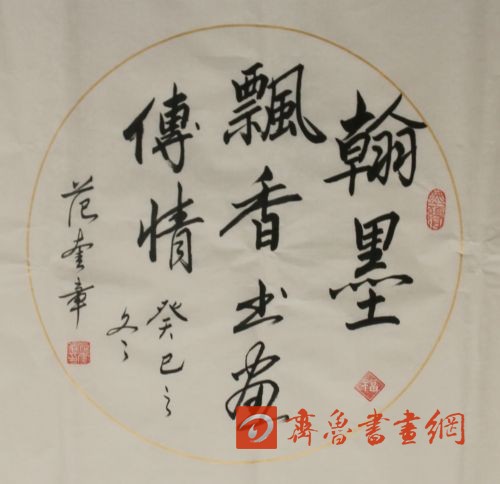 翰墨
飄香书画
傳情
癸巳之
冬
范奎章
福
齊魯書畫網